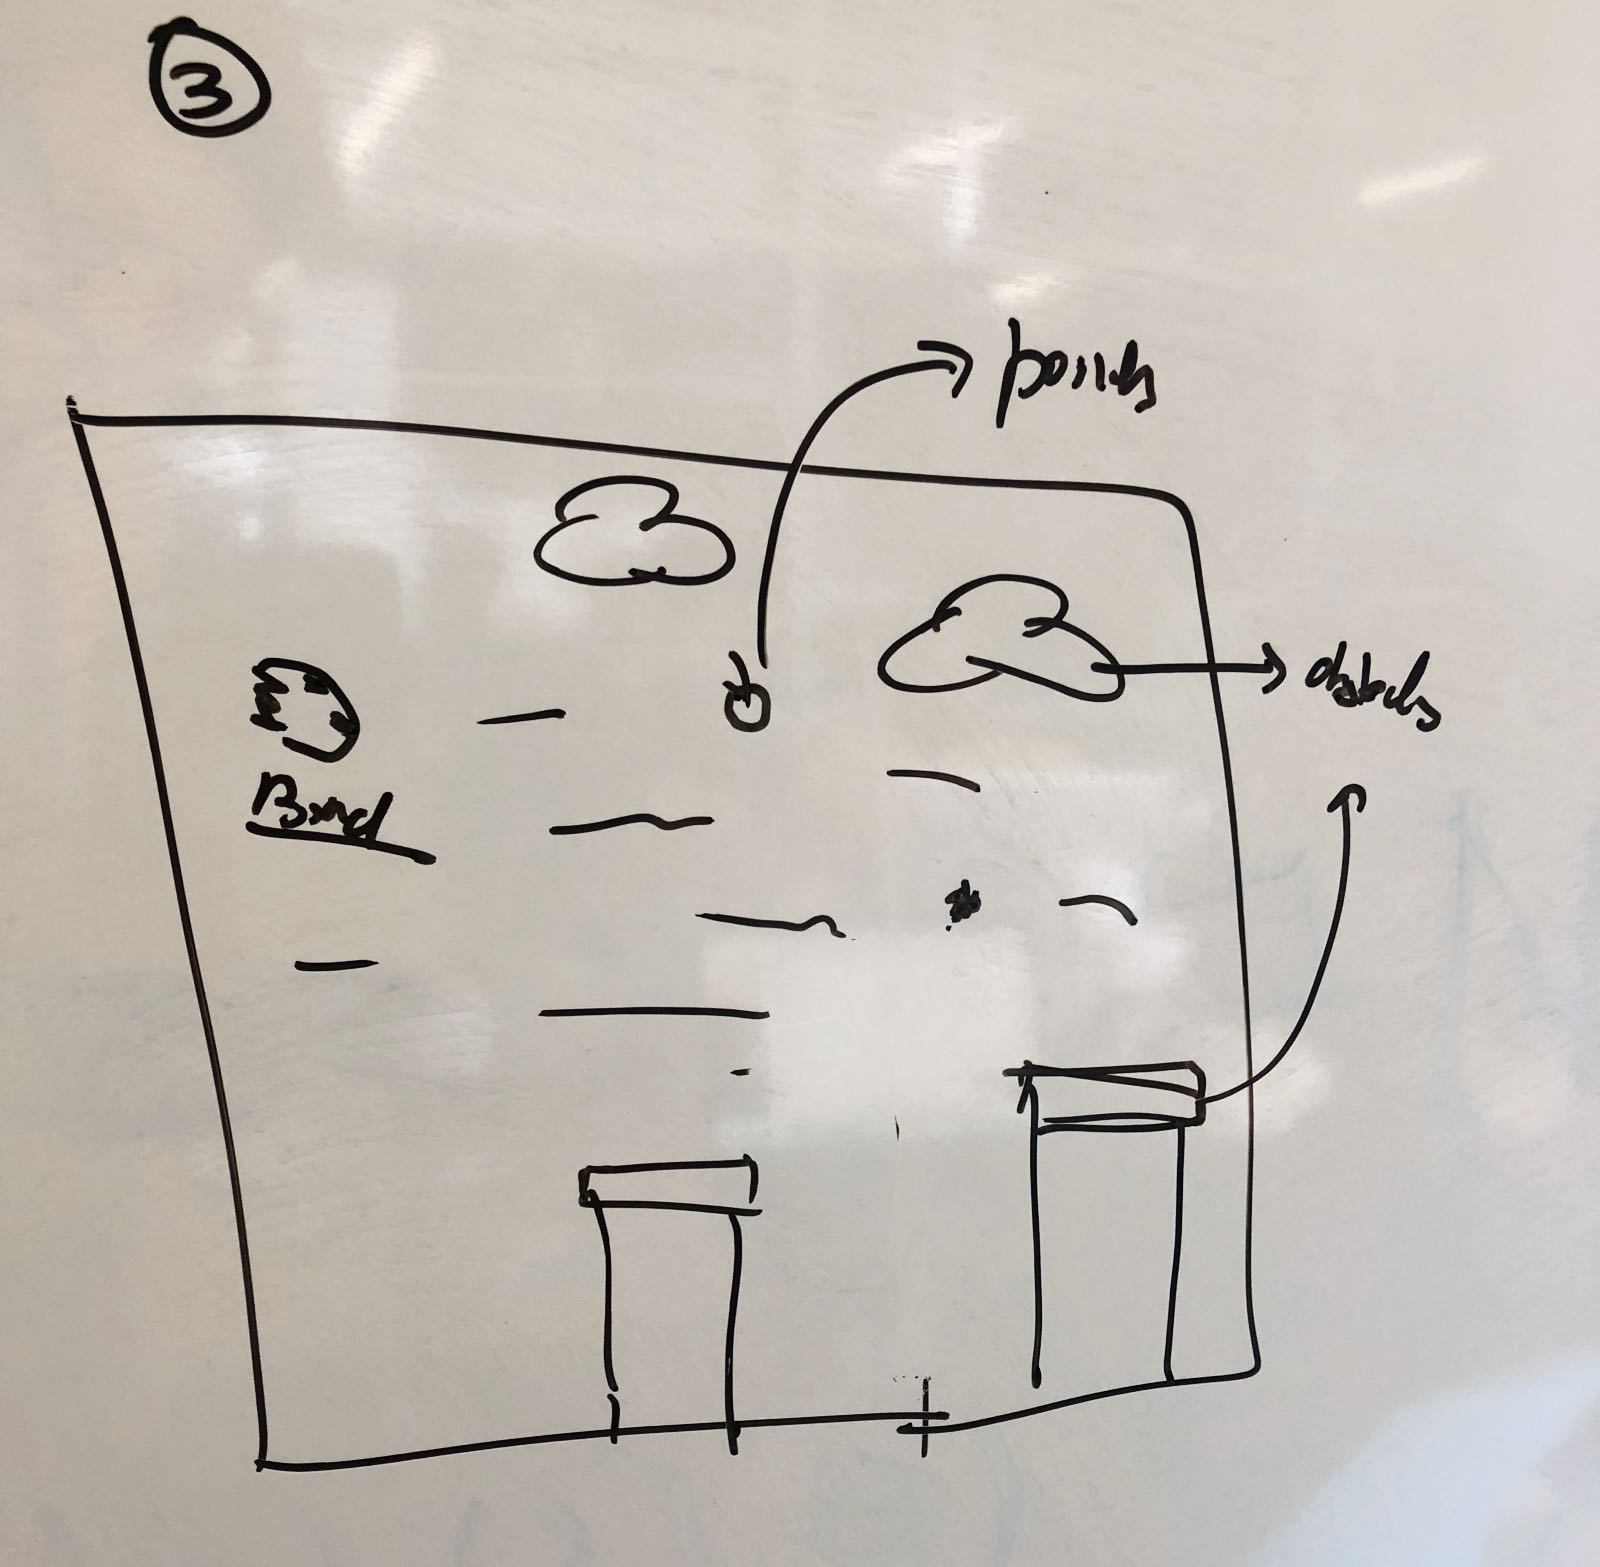 3
points
obstacles
Bird